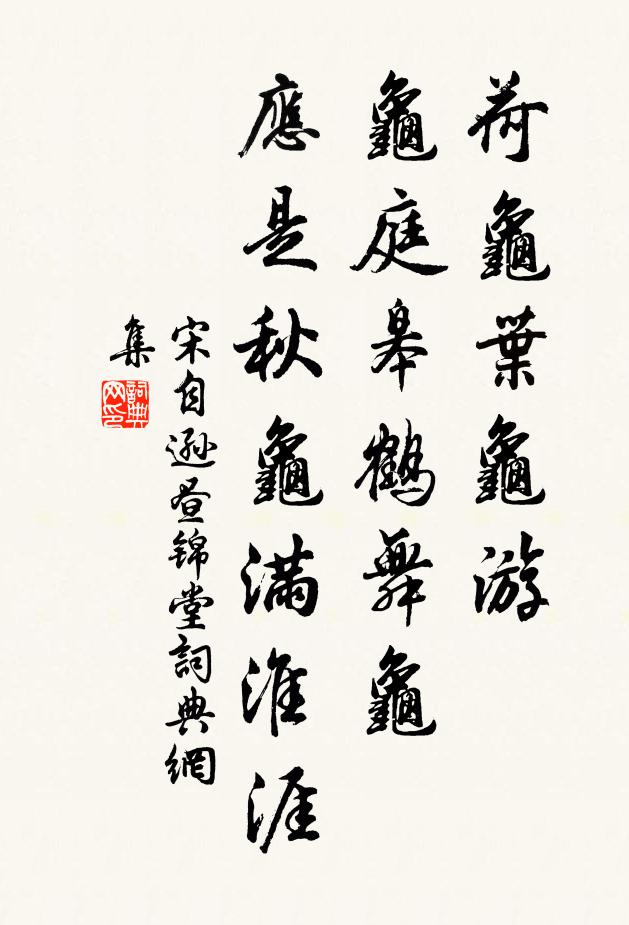 荷龜葉龜游
龜庭皋鶴舞龜
應是秋龜滿淮涯
宋自遜昼锦堂詞典網
集
詞典网印